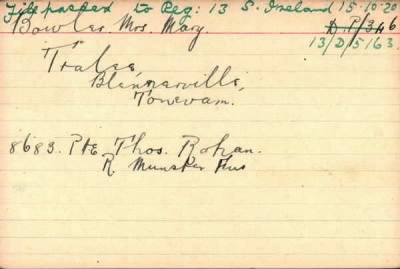 File passed to Reg: 13 S. Ireland 15.10.20
Bowler, Mrs. Mary. D.P/346
13/D/5163.
Tralee,
Blennerville,
Tonevam.
8683. Pte Thos. Rohan.
R. Munster Fus